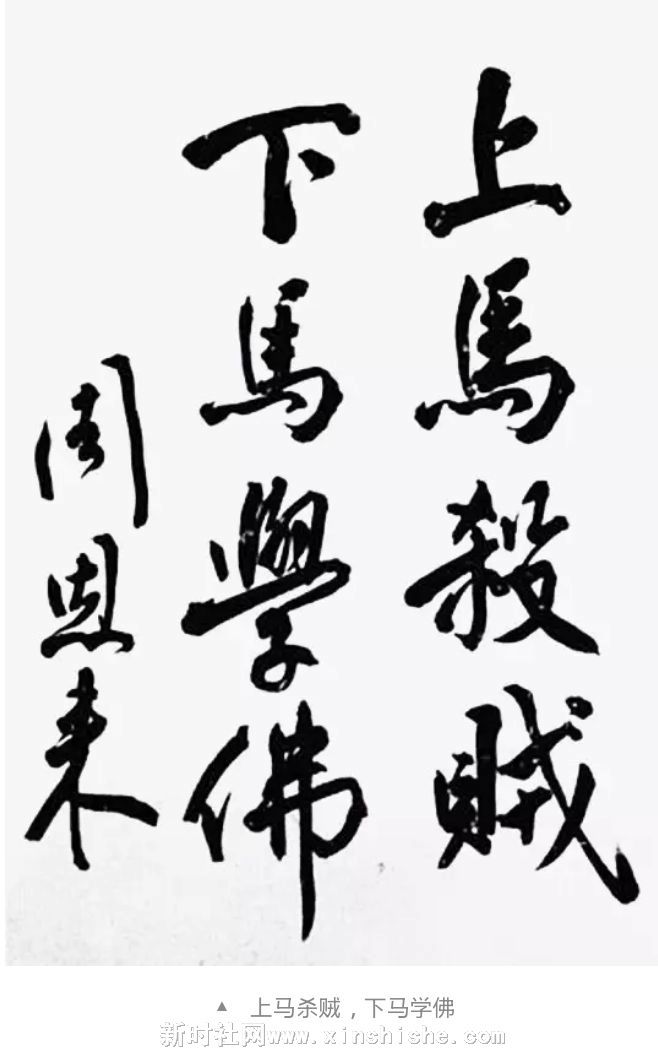 上馬殺賊
下馬學佛
周恩来
▲ 上马杀贼，下马学佛
新时社网www.xinshishe.com